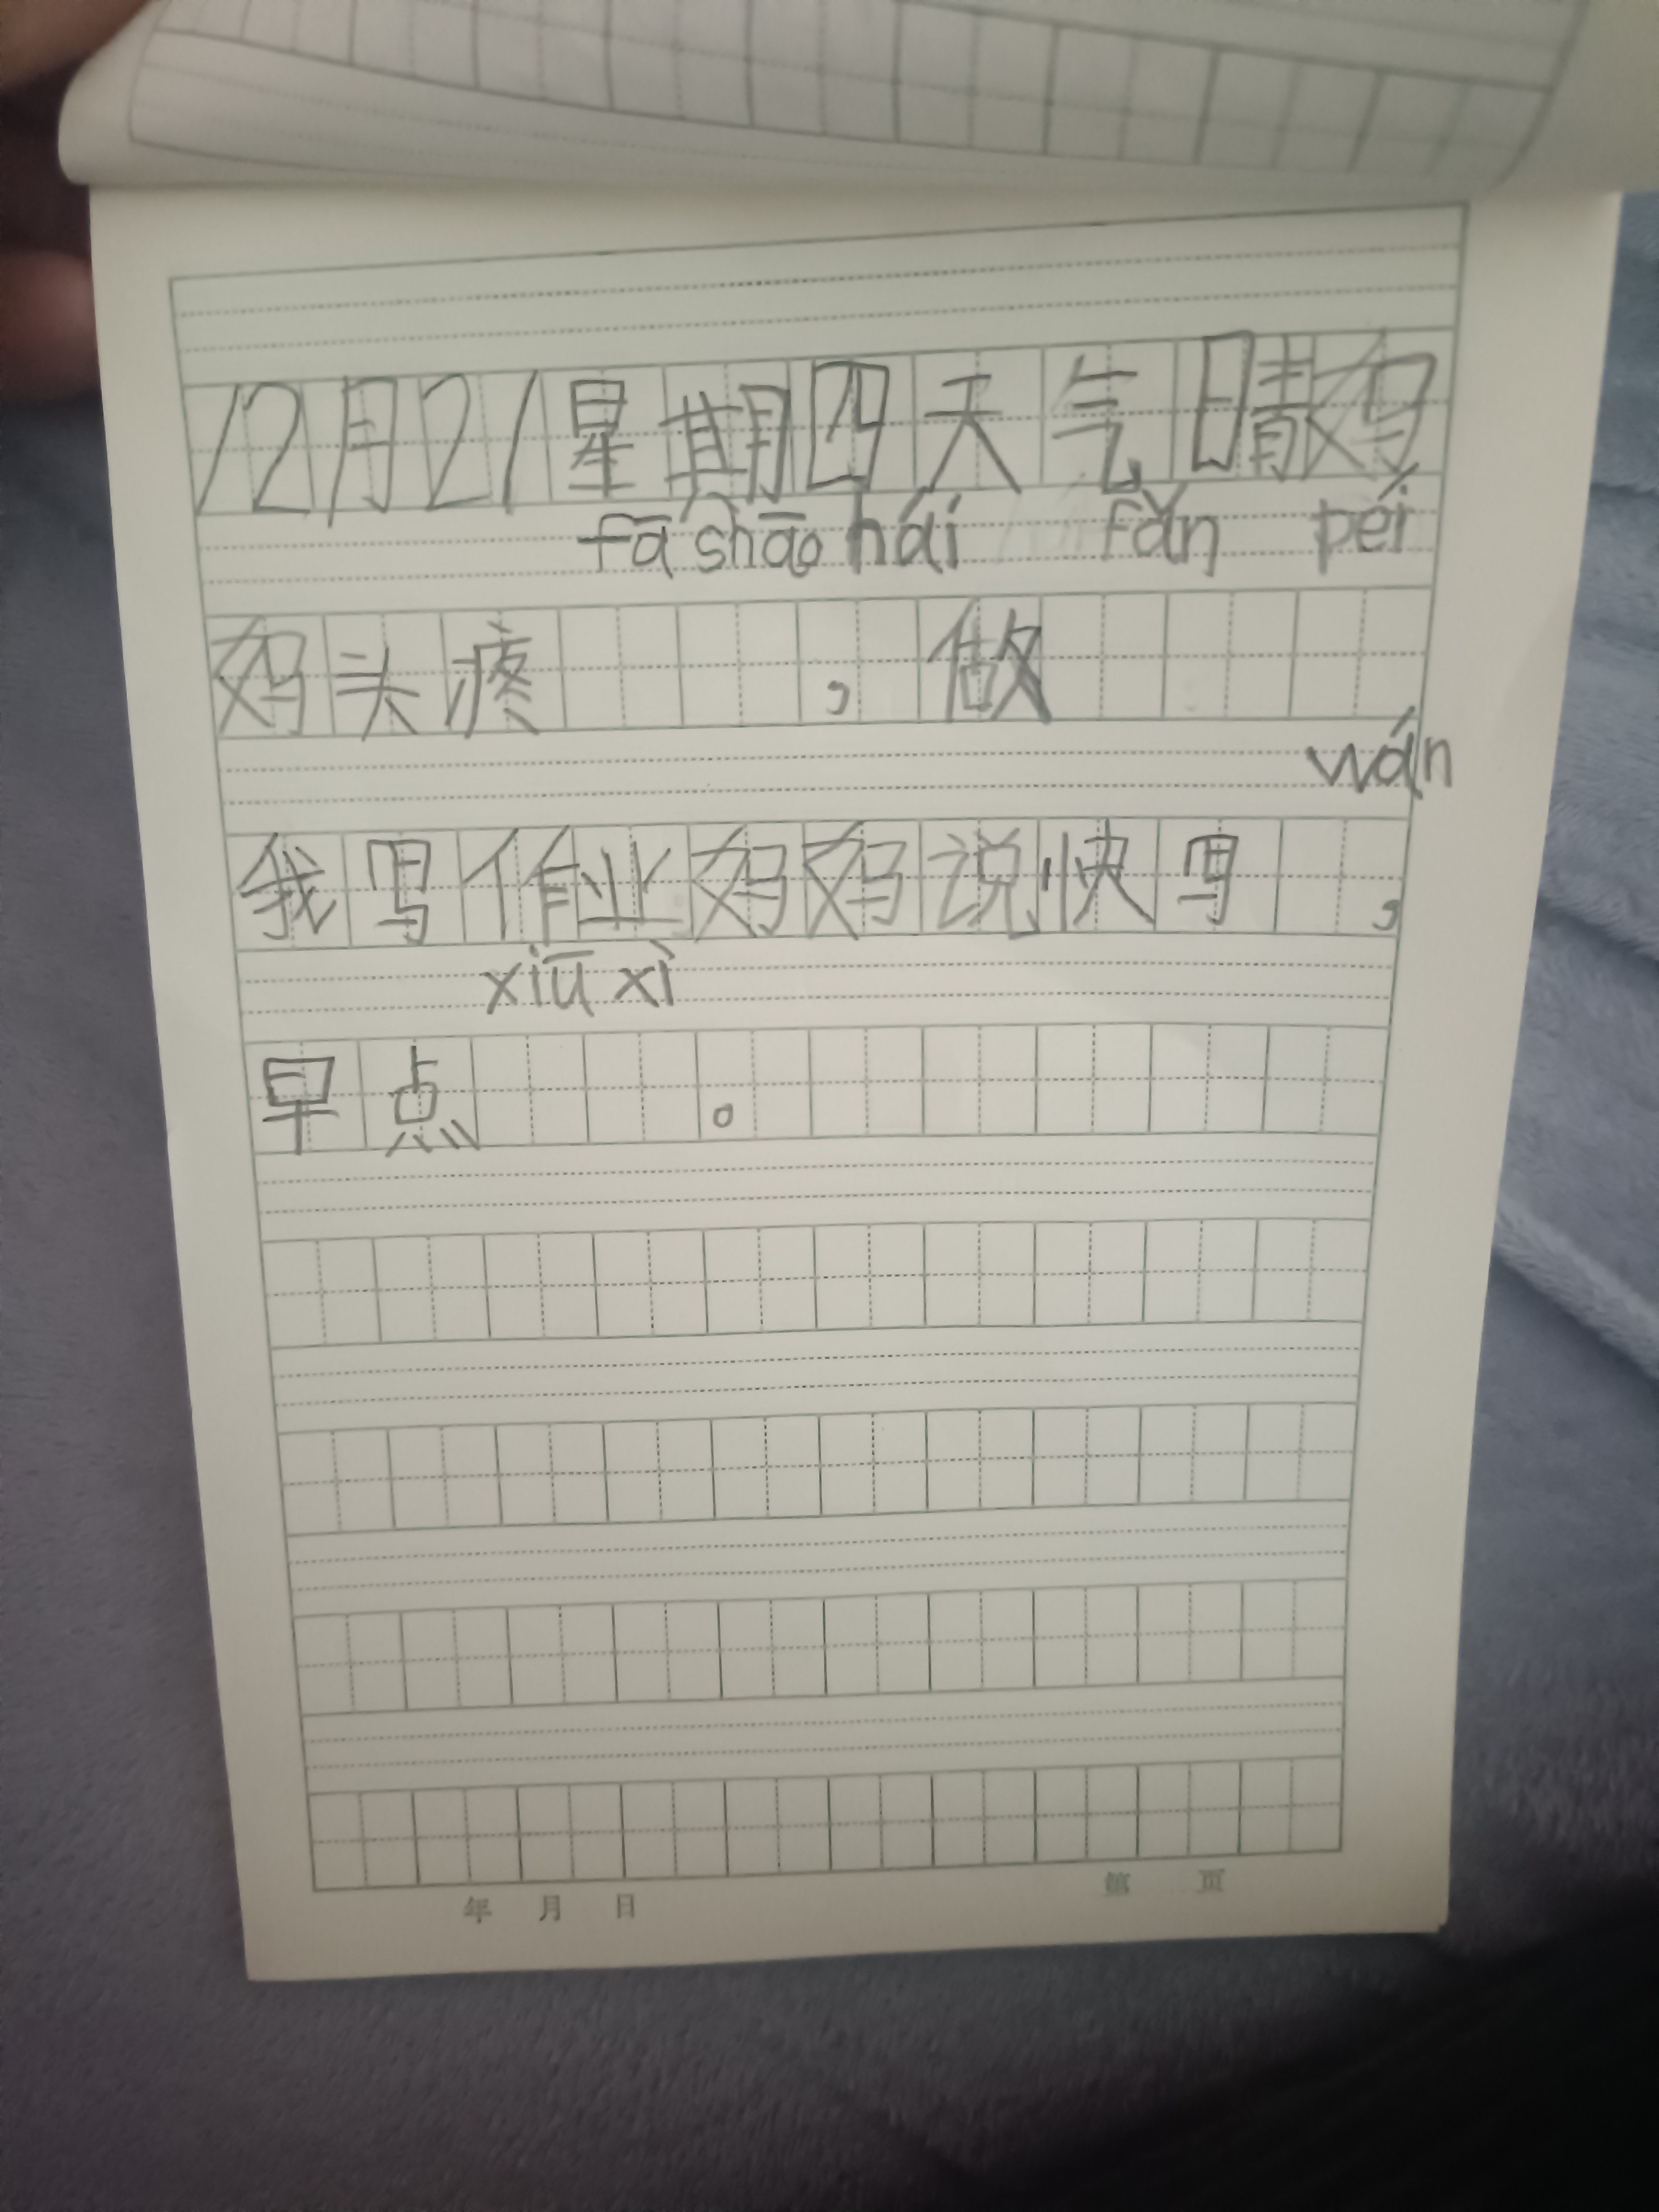 12月21星期四天气晴妈
fā shāo hái fǎn péi
妈头疼，做
wán
我写作业妈妈说快写，
xiū xì
早点。
年 月 日 第 页